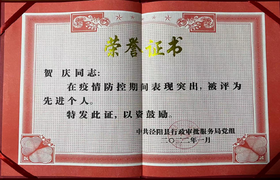 荣誉证书
贺 庆同志：
在疫情防控期间表现突出，被评为
先进个人。
特发此证，以资鼓励。
中共泾阳县行政审批服务局党组
二〇二二年一月